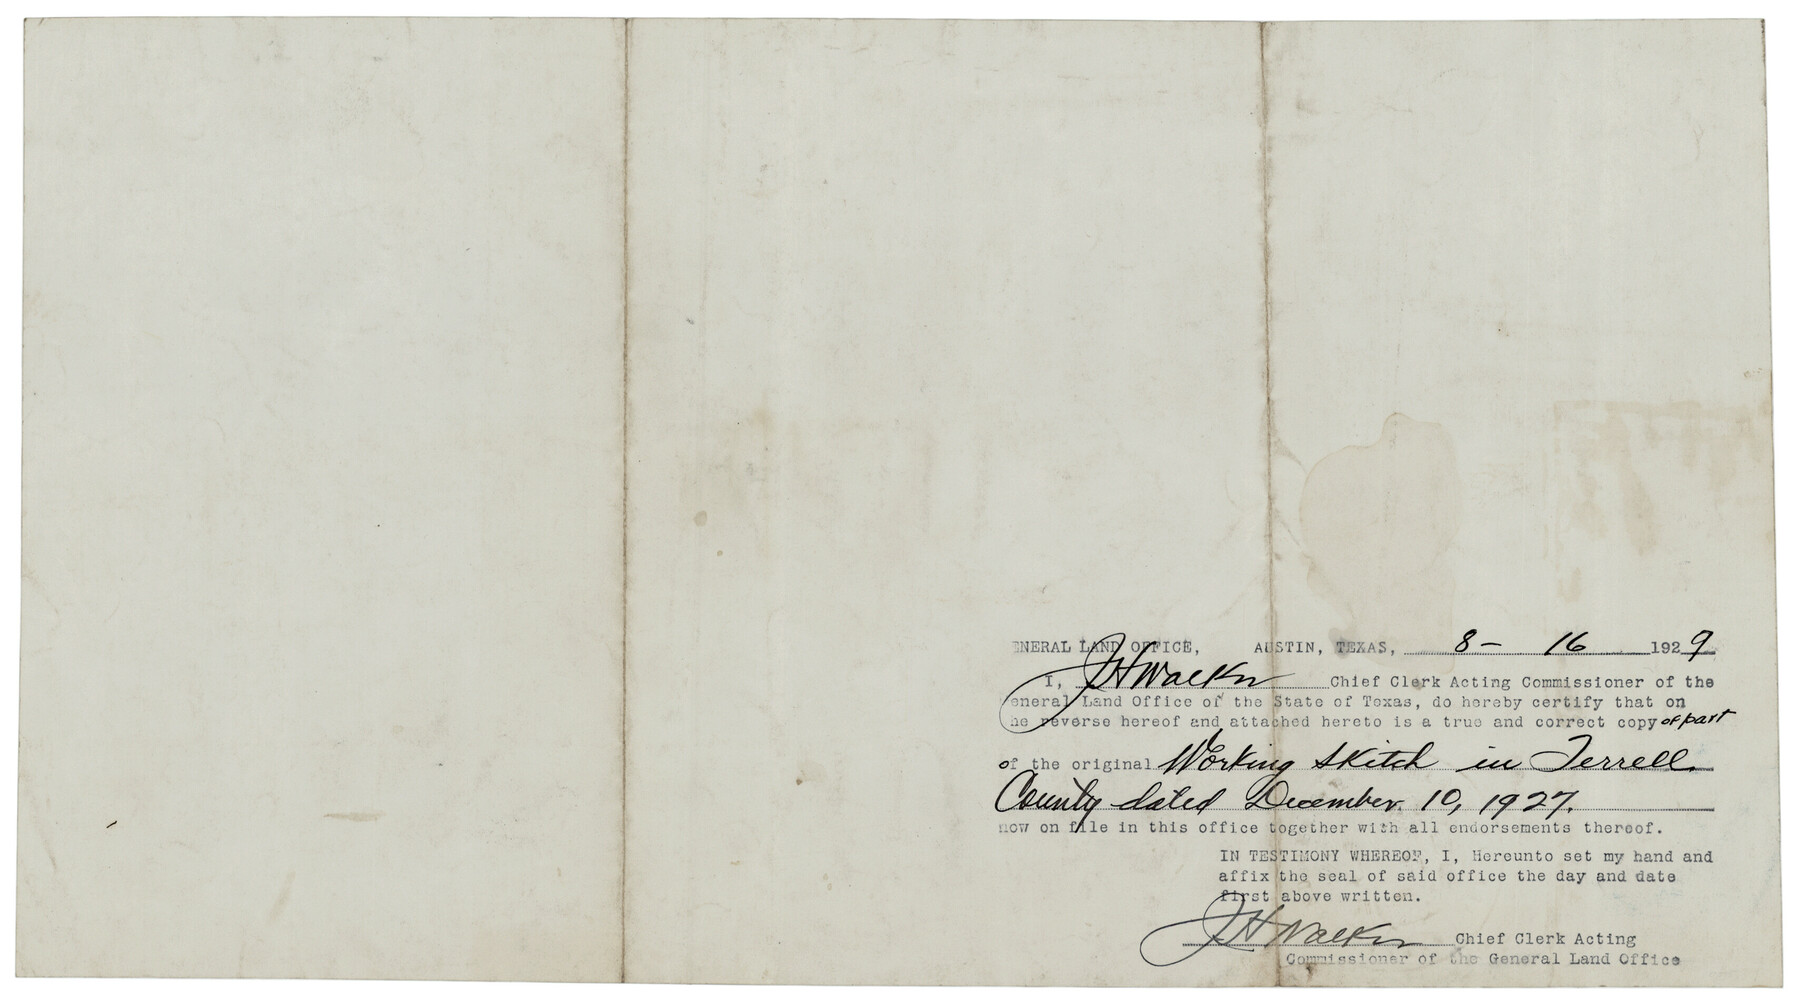 ENERAL LAND OFFICE, AUSTIN, TEXAS, 8- 16 1929
I, J H Walker Chief Clerk Acting Commissioner of the
eneral Land Office of the State of Texas, do hereby certify that on
he reverse hereof and attached hereto is a true and correct copy of part
of the original Working Sketch in Terrell
County dated December 10, 1927.
now on file in this office together with all endorsements thereof.
IN TESTIMONY WHEREOF, I, Hereunto set my hand and
affix the seal of said office the day and date
first above written.
J H Walker Chief Clerk Acting
Commissioner of the General Land Office